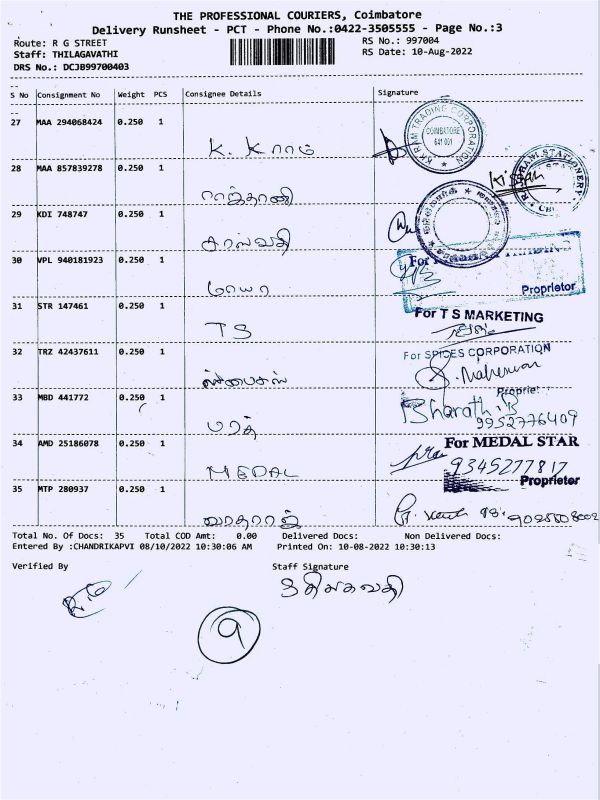 THE PROFESSIONAL COURIERS, Coimbatore
Delivery Runsheet - PCT - Phone No.:0422-3505555 - Page No.:3
Route: R G STREET
RS No.: 997004
Staff: THILAGAVATHI
RS Date: 10-Aug-2022
DRS No.: DCJB99700403
S No Consignment No Weight PCS Consignee Details Signature
27 MAA 294068424 0.250 1
K. KRAM TRADING CORPORATION
COIMBATORE
641 001
K. KRாம்
28 MAA 857839278 0.250 1
STATIONERY
Kissan
ராத்தானி
29 KDI 748747 0.250 1
சரஸ்வதி
30 VPL 940181923 0.250 1
For
Proprietor
மாயா
31 STR 147461 0.250 1
For T S MARKETING
TS
32 TRZ 42437611 0.250 1
For SPICES CORPORATION
ஸ்பைசஸ்
33 MBD 441772 0.250 1
Bharath.B
9952776409
பரத்
34 AMD 25186078 0.250 1
For MEDAL STAR
9345277817
Proprietor
MEDAL
35 MTP 280937 0.250 1
வரதராஜ்
Total No. Of Docs: 35 Total COD Amt: 0.00 Delivered Docs: Non Delivered Docs:
Entered By :CHANDRIKAPVI 08/10/2022 10:30:06 AM Printed On: 10-08-2022 10:30:13
Verified By
Staff Signature
திலகவதி
9